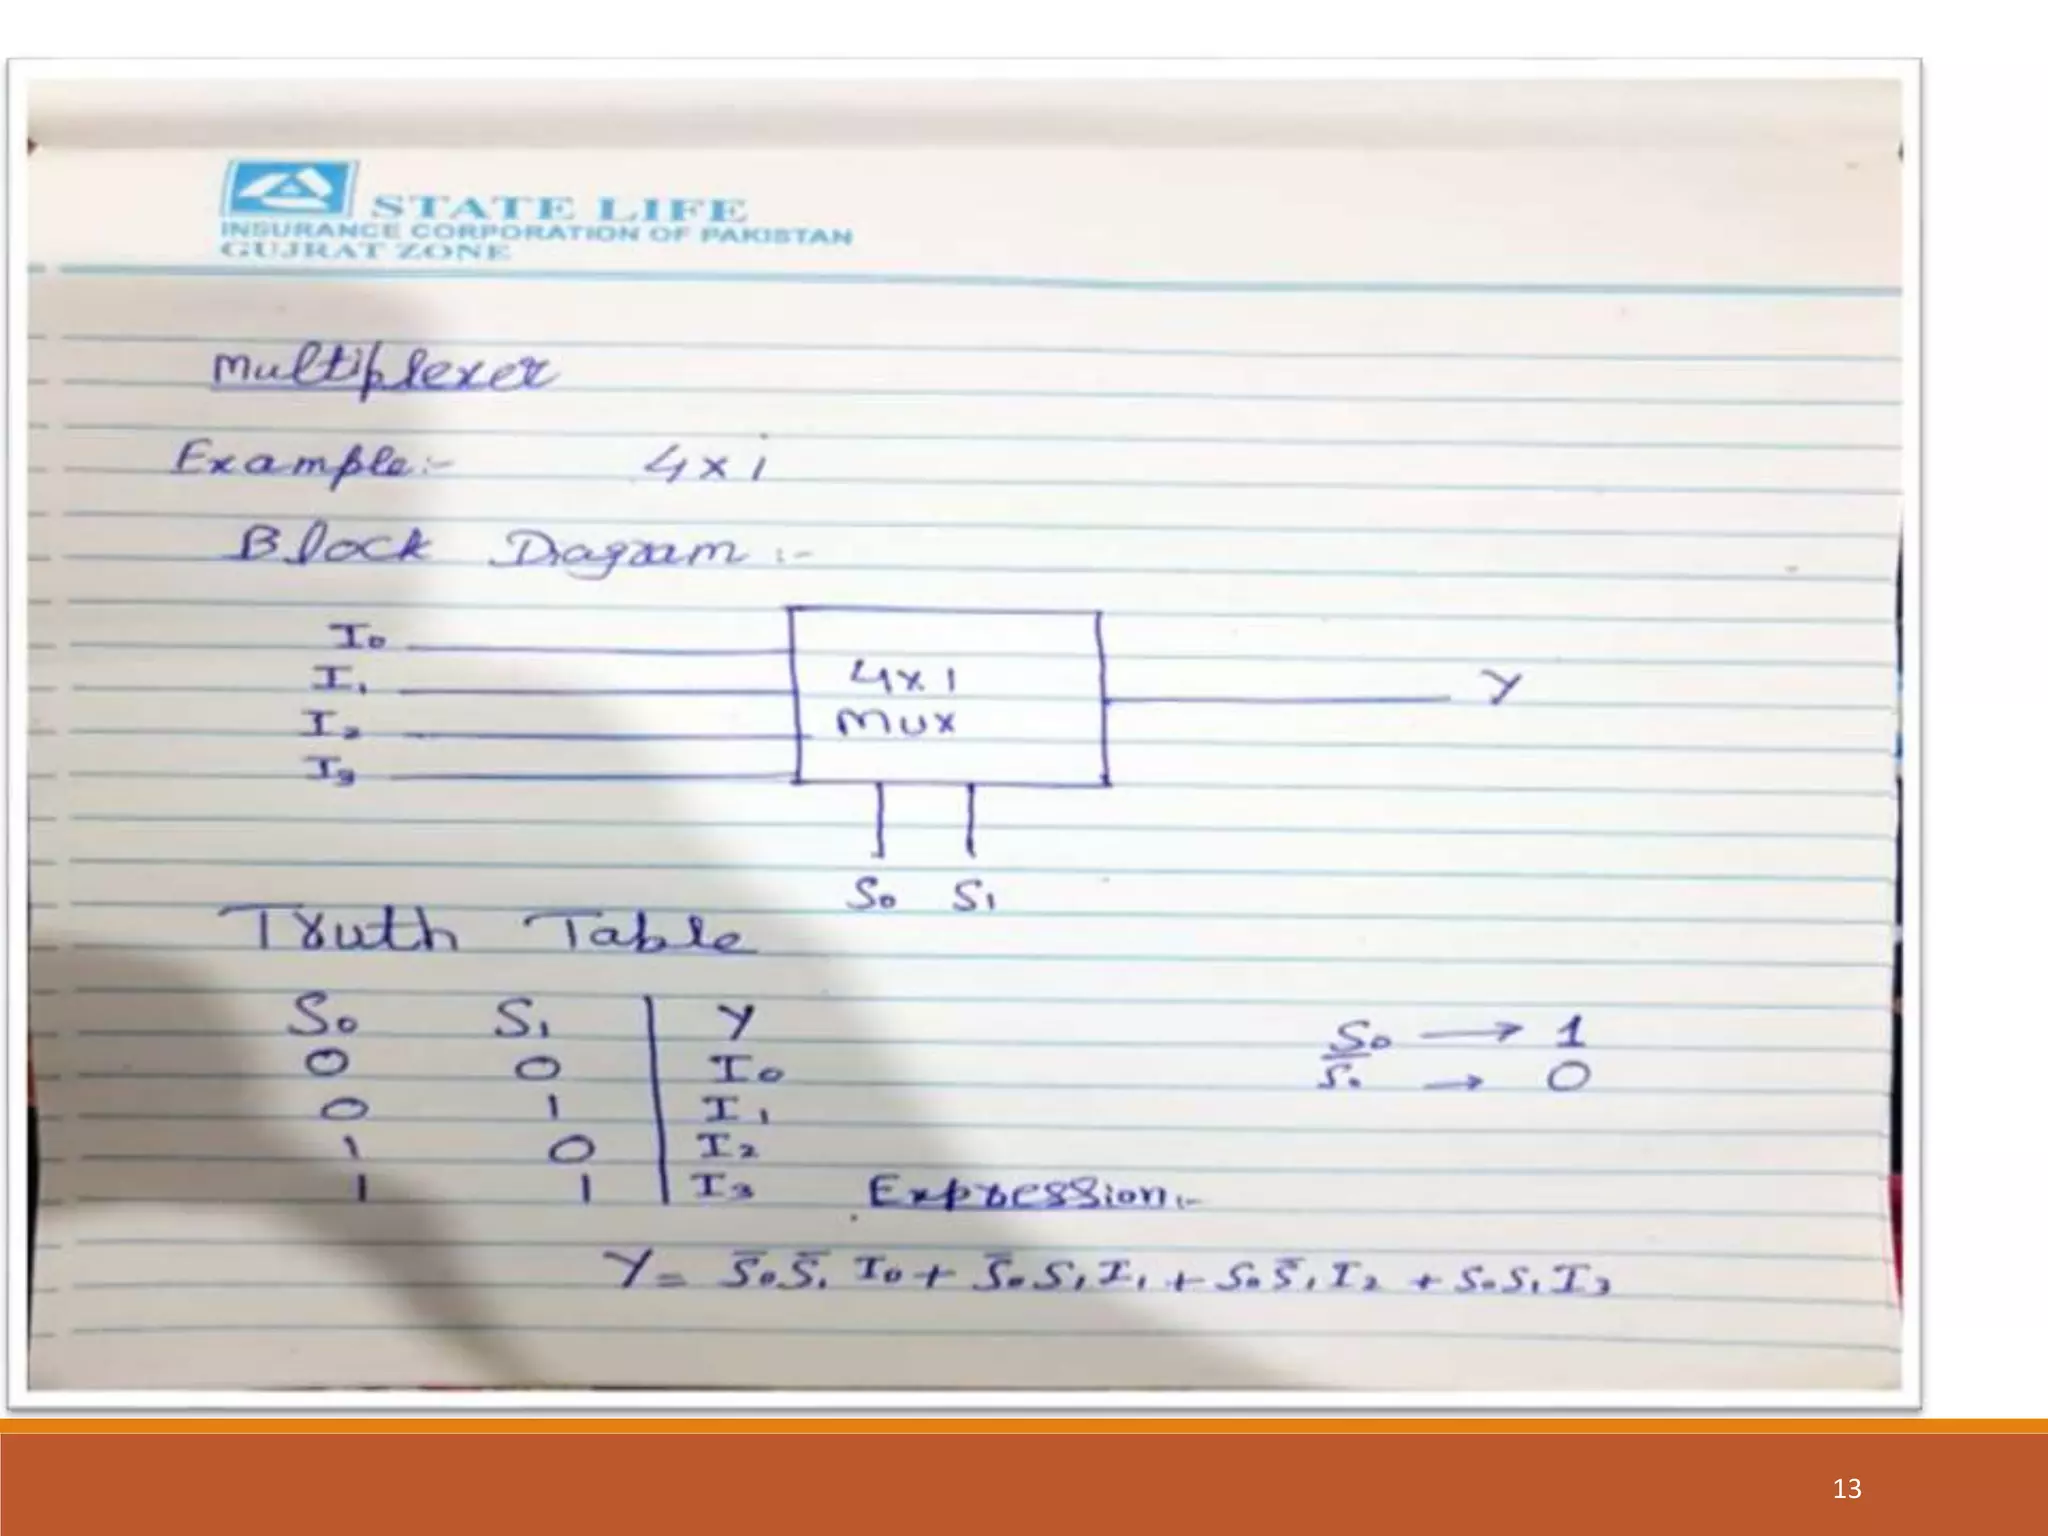 STATE LIFE
INSURANCE CORPORATION OF PAKISTAN
GUJRAT ZONE
Multiplexer
Example:- 4x1
Block Diagram:-
I0
I1
I2
I3
4x1
MUX
Y
S0 S1
Truth Table
S0 S1 Y
0 0 I0
0 1 I1
1 0 I2
1 1 I3
S0 → 1
S̅0 → 0
Expression:-
Y = S̅0S̅1 I0 + S̅0S1I1 + S0S̅1I2 + S0S1I3
13